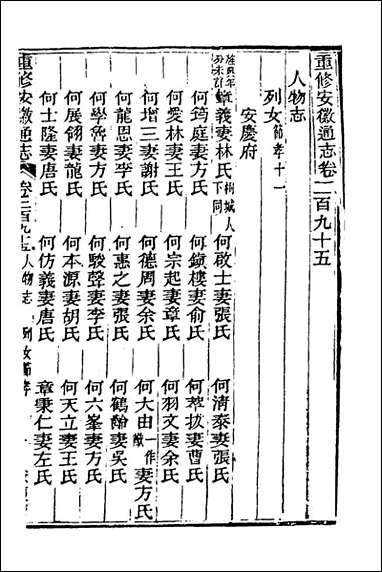 重修安徽通志卷二百九十五
人物志
列女節孝十一
安慶府
義妻林氏桐城人下同 何啟士妻張氏 何清泰妻張氏
何筠庭妻方氏 何鎮樓妻俞氏 何萃拔妻曹氏
何愛林妻王氏 何宗起妻章氏 何羽文妻余氏
何增三妻謝氏 何德周妻余氏 何大由一作猷妻方氏
何龍恩妻李氏 何惠之妻張氏 何鶴齡妻吳氏
何學魯妻方氏 何駿聲妻李氏 何六峯妻方氏
何展翎妻龍氏 何本源妻胡氏 何天立妻王氏
何士隆妻唐氏 何仿義妻唐氏 章秉仁妻左氏
重修安徽通志 卷二百九十五 人物志 列女節孝 十一